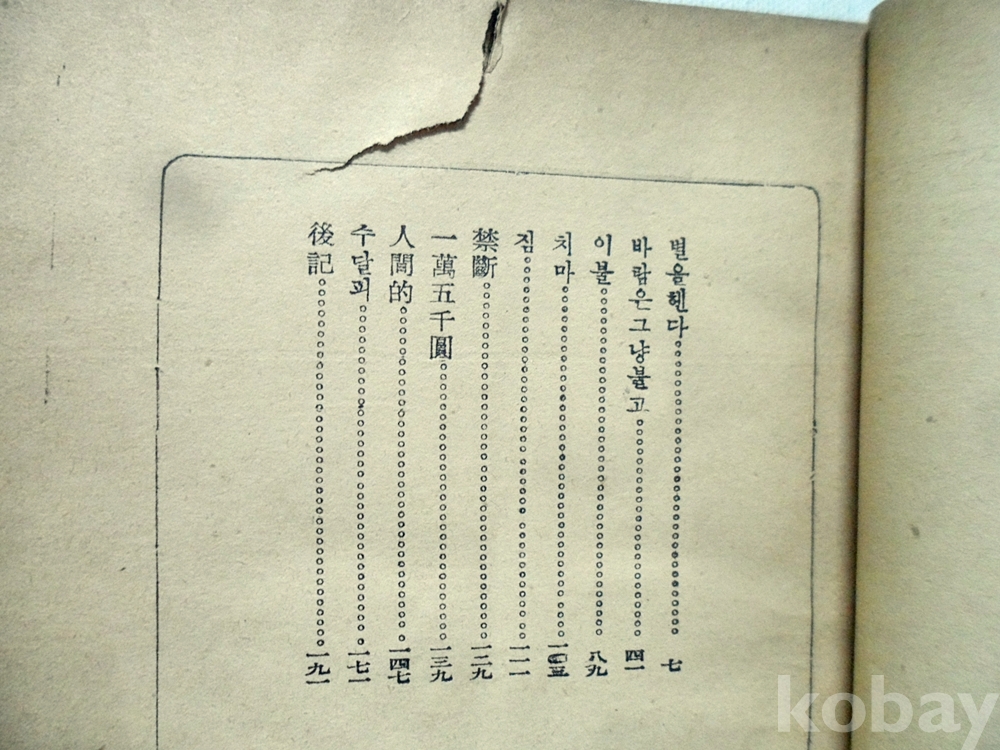 별을헨다 七
바람은그냥불고 四一
이불 八九
치마 一〇五
짐 一一一
禁斷 一二九
一萬五千圓 一三九
人間的 一四七
수달피 一七一
後記 一九一
kobay